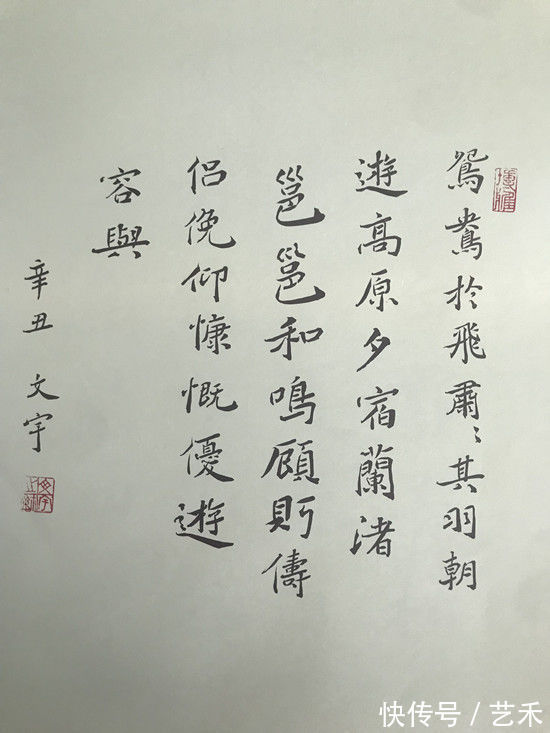 鴛鴦於飛肅〻其羽朝
遊高原夕宿蘭渚
邕邕和鳴頋眄儔
侶俛仰慷慨優遊
容與
辛丑 文宇
快传号 / 艺禾